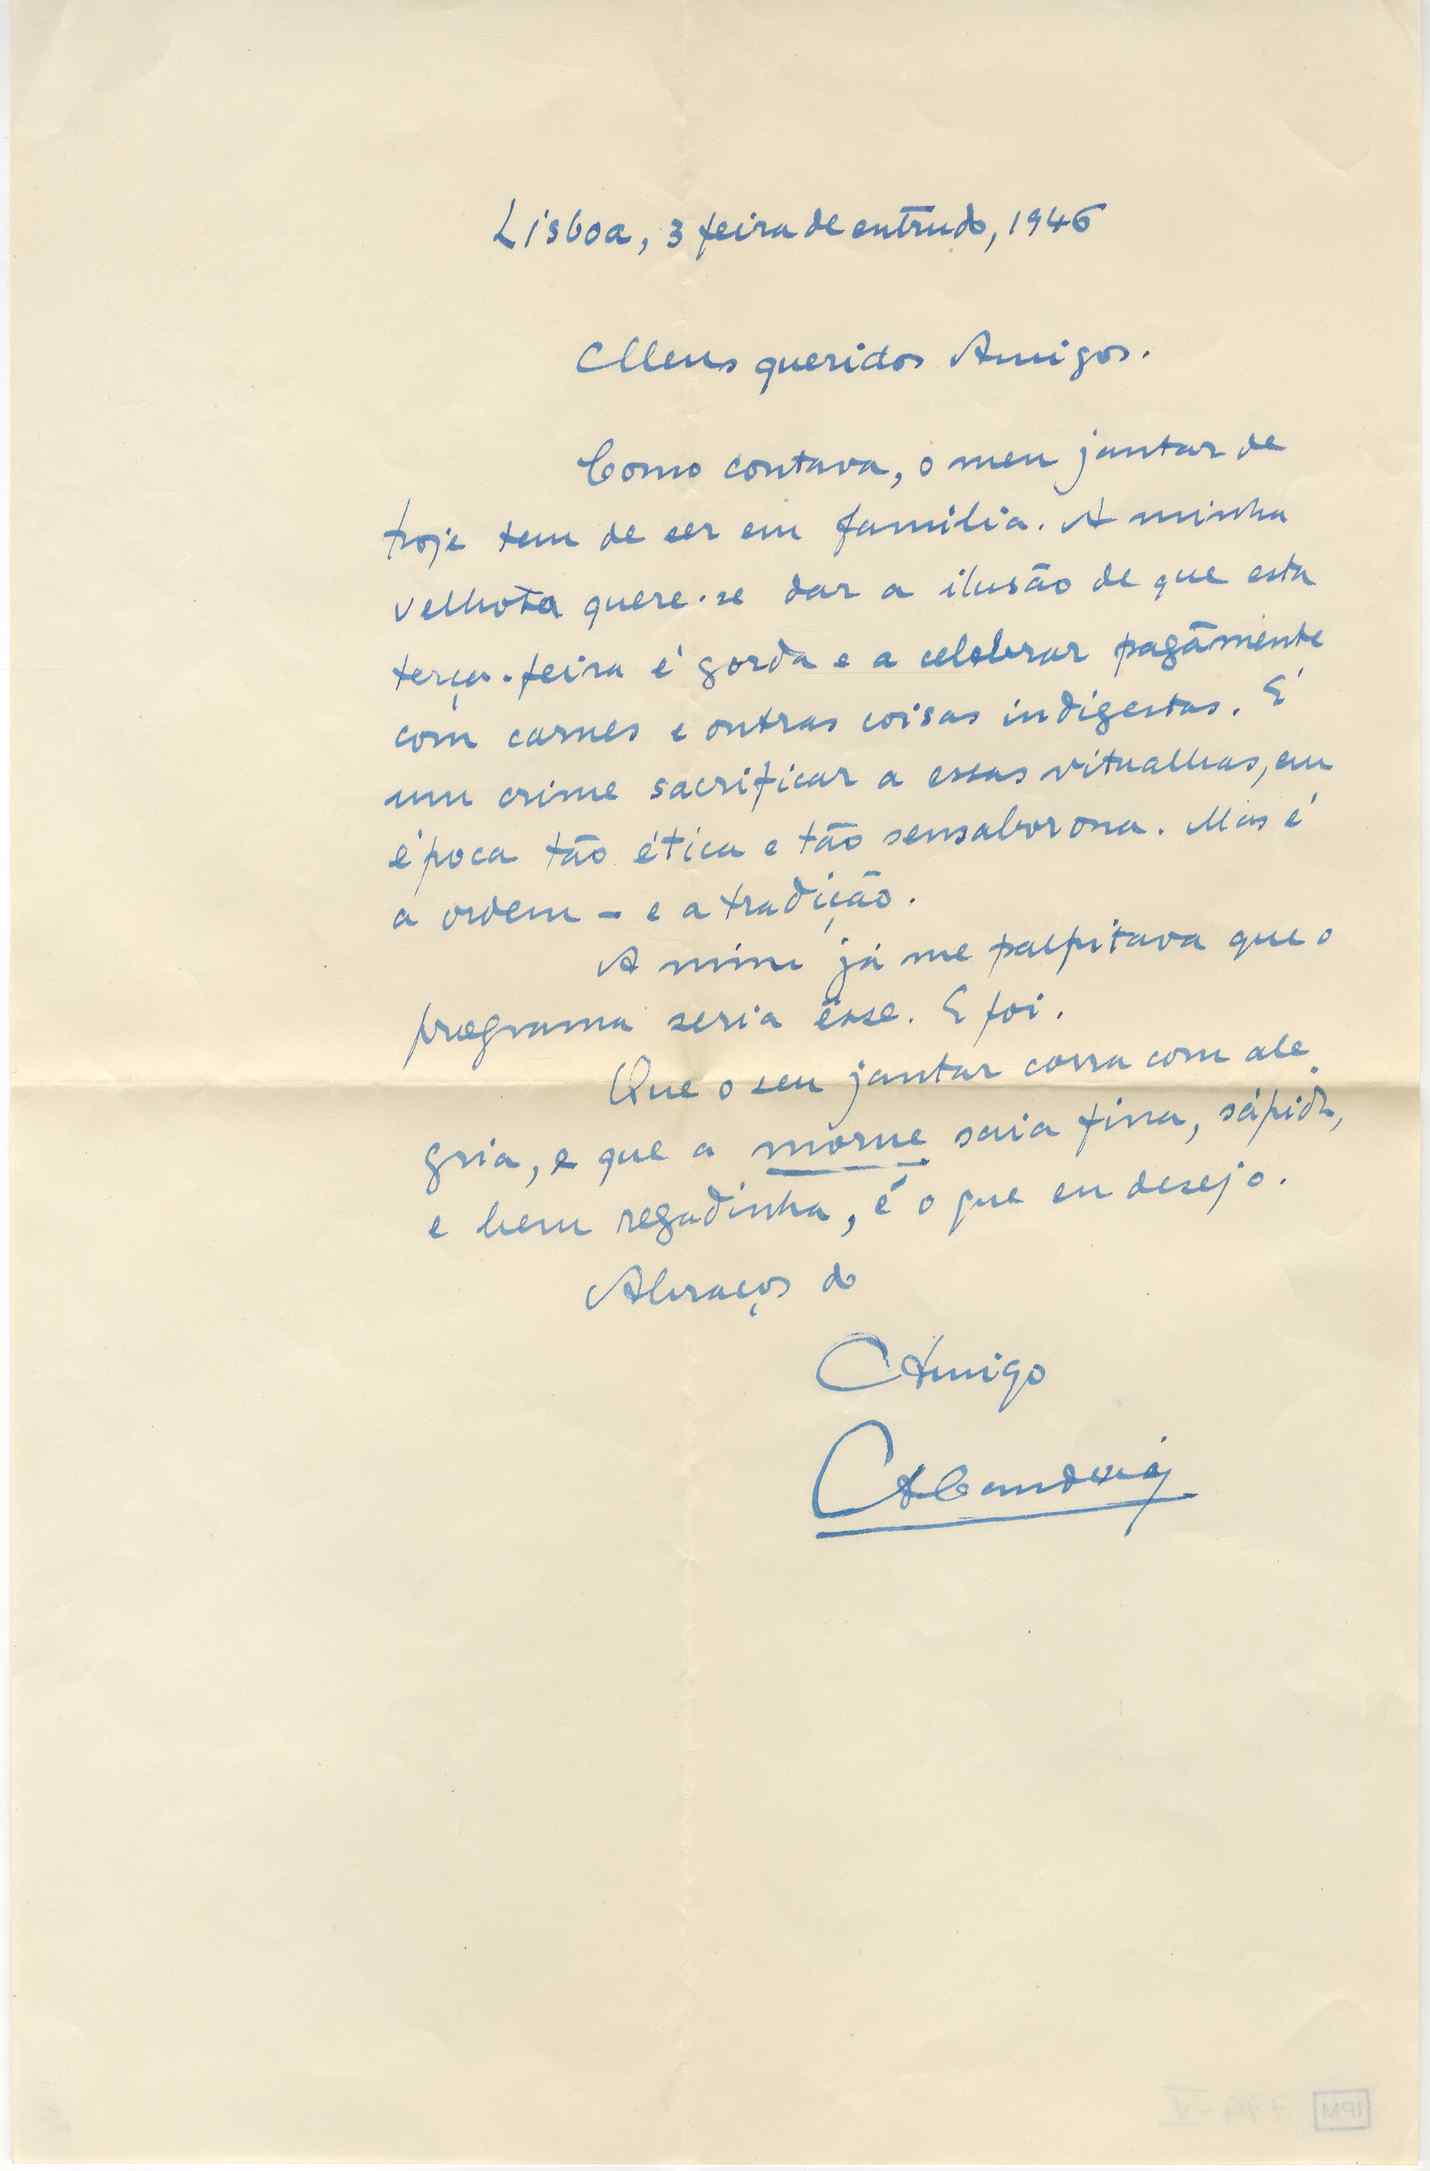 Lisboa, 3 feira de entrudo, 1946
Meus queridos Amigos.
Como contava, o meu jantar de
hoje tem de ser em familia. A minha
velhota quere-se dar a ilusão de que esta
terça-feira é gorda e a celebrar pagãmente
com carnes e outras coisas indigestas. É
um crime sacrificar a essas vitualhas, em
época tão ética e tão sensaborona. Mas é
a ordem - e a tradição.
A mim já me palpitava que o
programa seria êsse. E foi.
Que o seu jantar corra com ale
gria, e que a morue saia fina, sápida,
e bem regadinha, é o que eu desejo.
Abraços do
Amigo
IPM